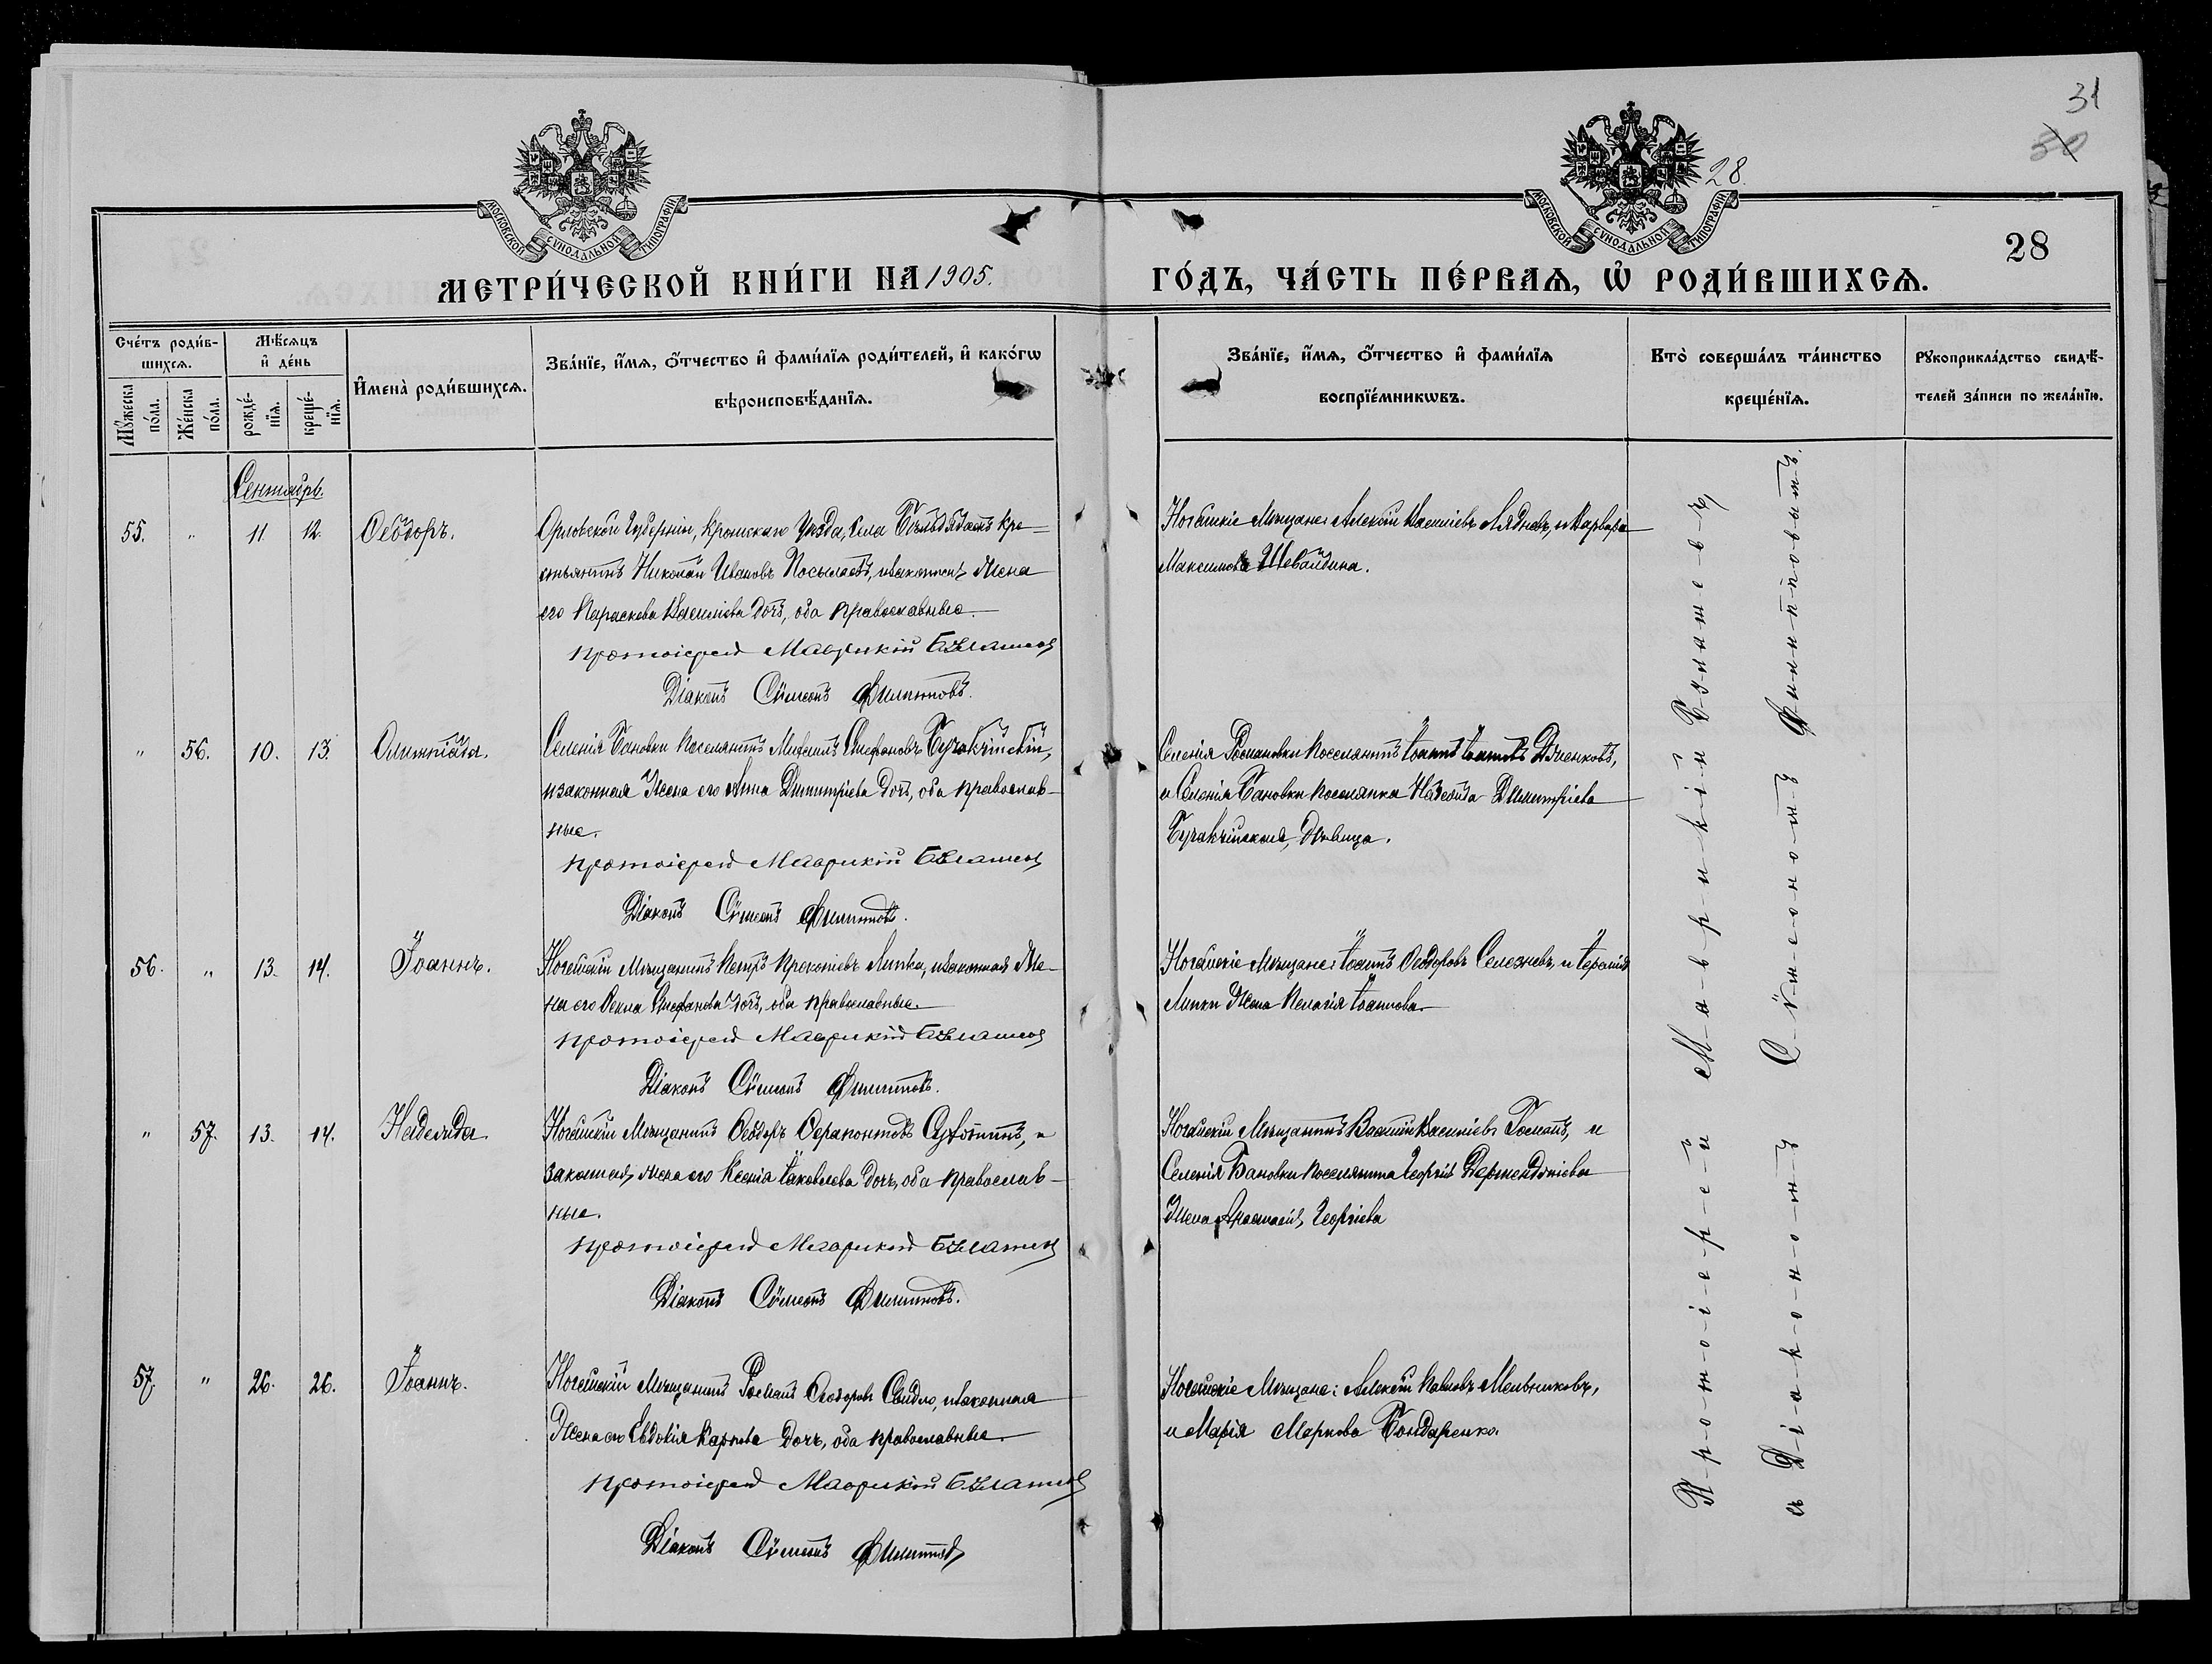 31
30
28.
МОСКОВСКОЙ СѴНОДАЛЬНОЙ ТИПОГРАФІИ
МОСКОВСКОЙ СѴНОДАЛЬНОЙ ТИПОГРАФІИ
28
МЕТРИ́ЧЕСКОЙ КНИ́ГИ НА 1905. ГО́ДЪ, ЧА́СТЬ ПЕ́РВАѦ, Ѡ҆ РОДИ́ВШИХСѦ.
Сче́тъ роди́в-
шихсѧ.
Мꙋ́жеска по́ла.
Же́нска по́ла.
Мѣ́сѧцъ
и҆ де́нь
рожде́-
нїѧ.
креще́-
нїѧ.
И҆мена̀ роди́вшихсѧ.
Зва́нїе, и҆́мѧ, ѻ҆́тчество и҆ фами́лїѧ роди́телей, и҆ како́гѡ
вѣроисповѣ́данїѧ.
Зва́нїе, и҆́мѧ, ѻ҆́тчество и҆ фами́лїѧ
воспрїе́мникѡвъ.
Кто̀ соверша́лъ та́инство
креще́нїѧ.
Рꙋкоприкла́дство свидѣ́-
телей за́писи по жела́нїю.
Сентябрь.
55. " 11. 12. Ѳеодоръ.
Орловской Губерніи, Кромскаго Уѣзда, Села Кре-
стьянинъ Николай Ивановъ и законная Жена
его Параскева Василіева дочь, оба православные.
Протоіерей Маврикій
Діаконъ Сѵмеонъ Филипповъ.
Ногайскіе Мѣщане: Алексій Василіевъ и Варвара
Максимова
" 56. 10. 13. Олимпіада.
Селенія Бановки Поселянинъ Стефановъ
и законная Жена его Анна Димитріева дочь, оба православ-
ные.
Протоіерей Маврикій
Діаконъ Сѵмеонъ Филипповъ.
Селенія Романовки Поселянинъ Іоаннъ
и Селенія Бановки Поселянка Надежда Димитріева
дѣвица.
56. " 13. 14. Іоаннъ.
Ногайскій Мѣщанинъ Петръ Прокопіевъ Липка, и законная Же-
на его Ѳекла Стефанова дочь, оба православные.
Протоіерей Маврикій
Діаконъ Сѵмеонъ Филипповъ.
Ногайскіе Мѣщане: Іоаннъ Ѳеодоровъ Селезневъ, и
Липки Жена Пелагія Іоаннова.
" 57. 13. 14. Надежда
Ногайскій Мѣщанинъ Ѳеодоръ Ѳерапонтовъ и
законная жена его Ксенія Іаковлева дочь, оба православ-
ные.
Протоіерей Маврикій
Діаконъ Сѵмеонъ Филипповъ.
Ногайскій Мѣщанинъ Василій Василіевъ и
Селенія Бановки Поселянина Георгія
Жена Анастасія Георгіева
57. " 26. 26. Іоаннъ.
Ногайскій Мѣщанинъ Романъ Ѳеодоровъ и законная
Жена его Евдокія Карпова дочь, оба православные.
Протоіерей Маврикій
Діаконъ Сѵмеонъ Филипповъ
Ногайскіе Мѣщане: Алексій Павловъ Мельниковъ,
и Марія Маркова Бондаренко.
Протоіерей Маврикій
съ Діакономъ Сѵмеономъ Филипповымъ.